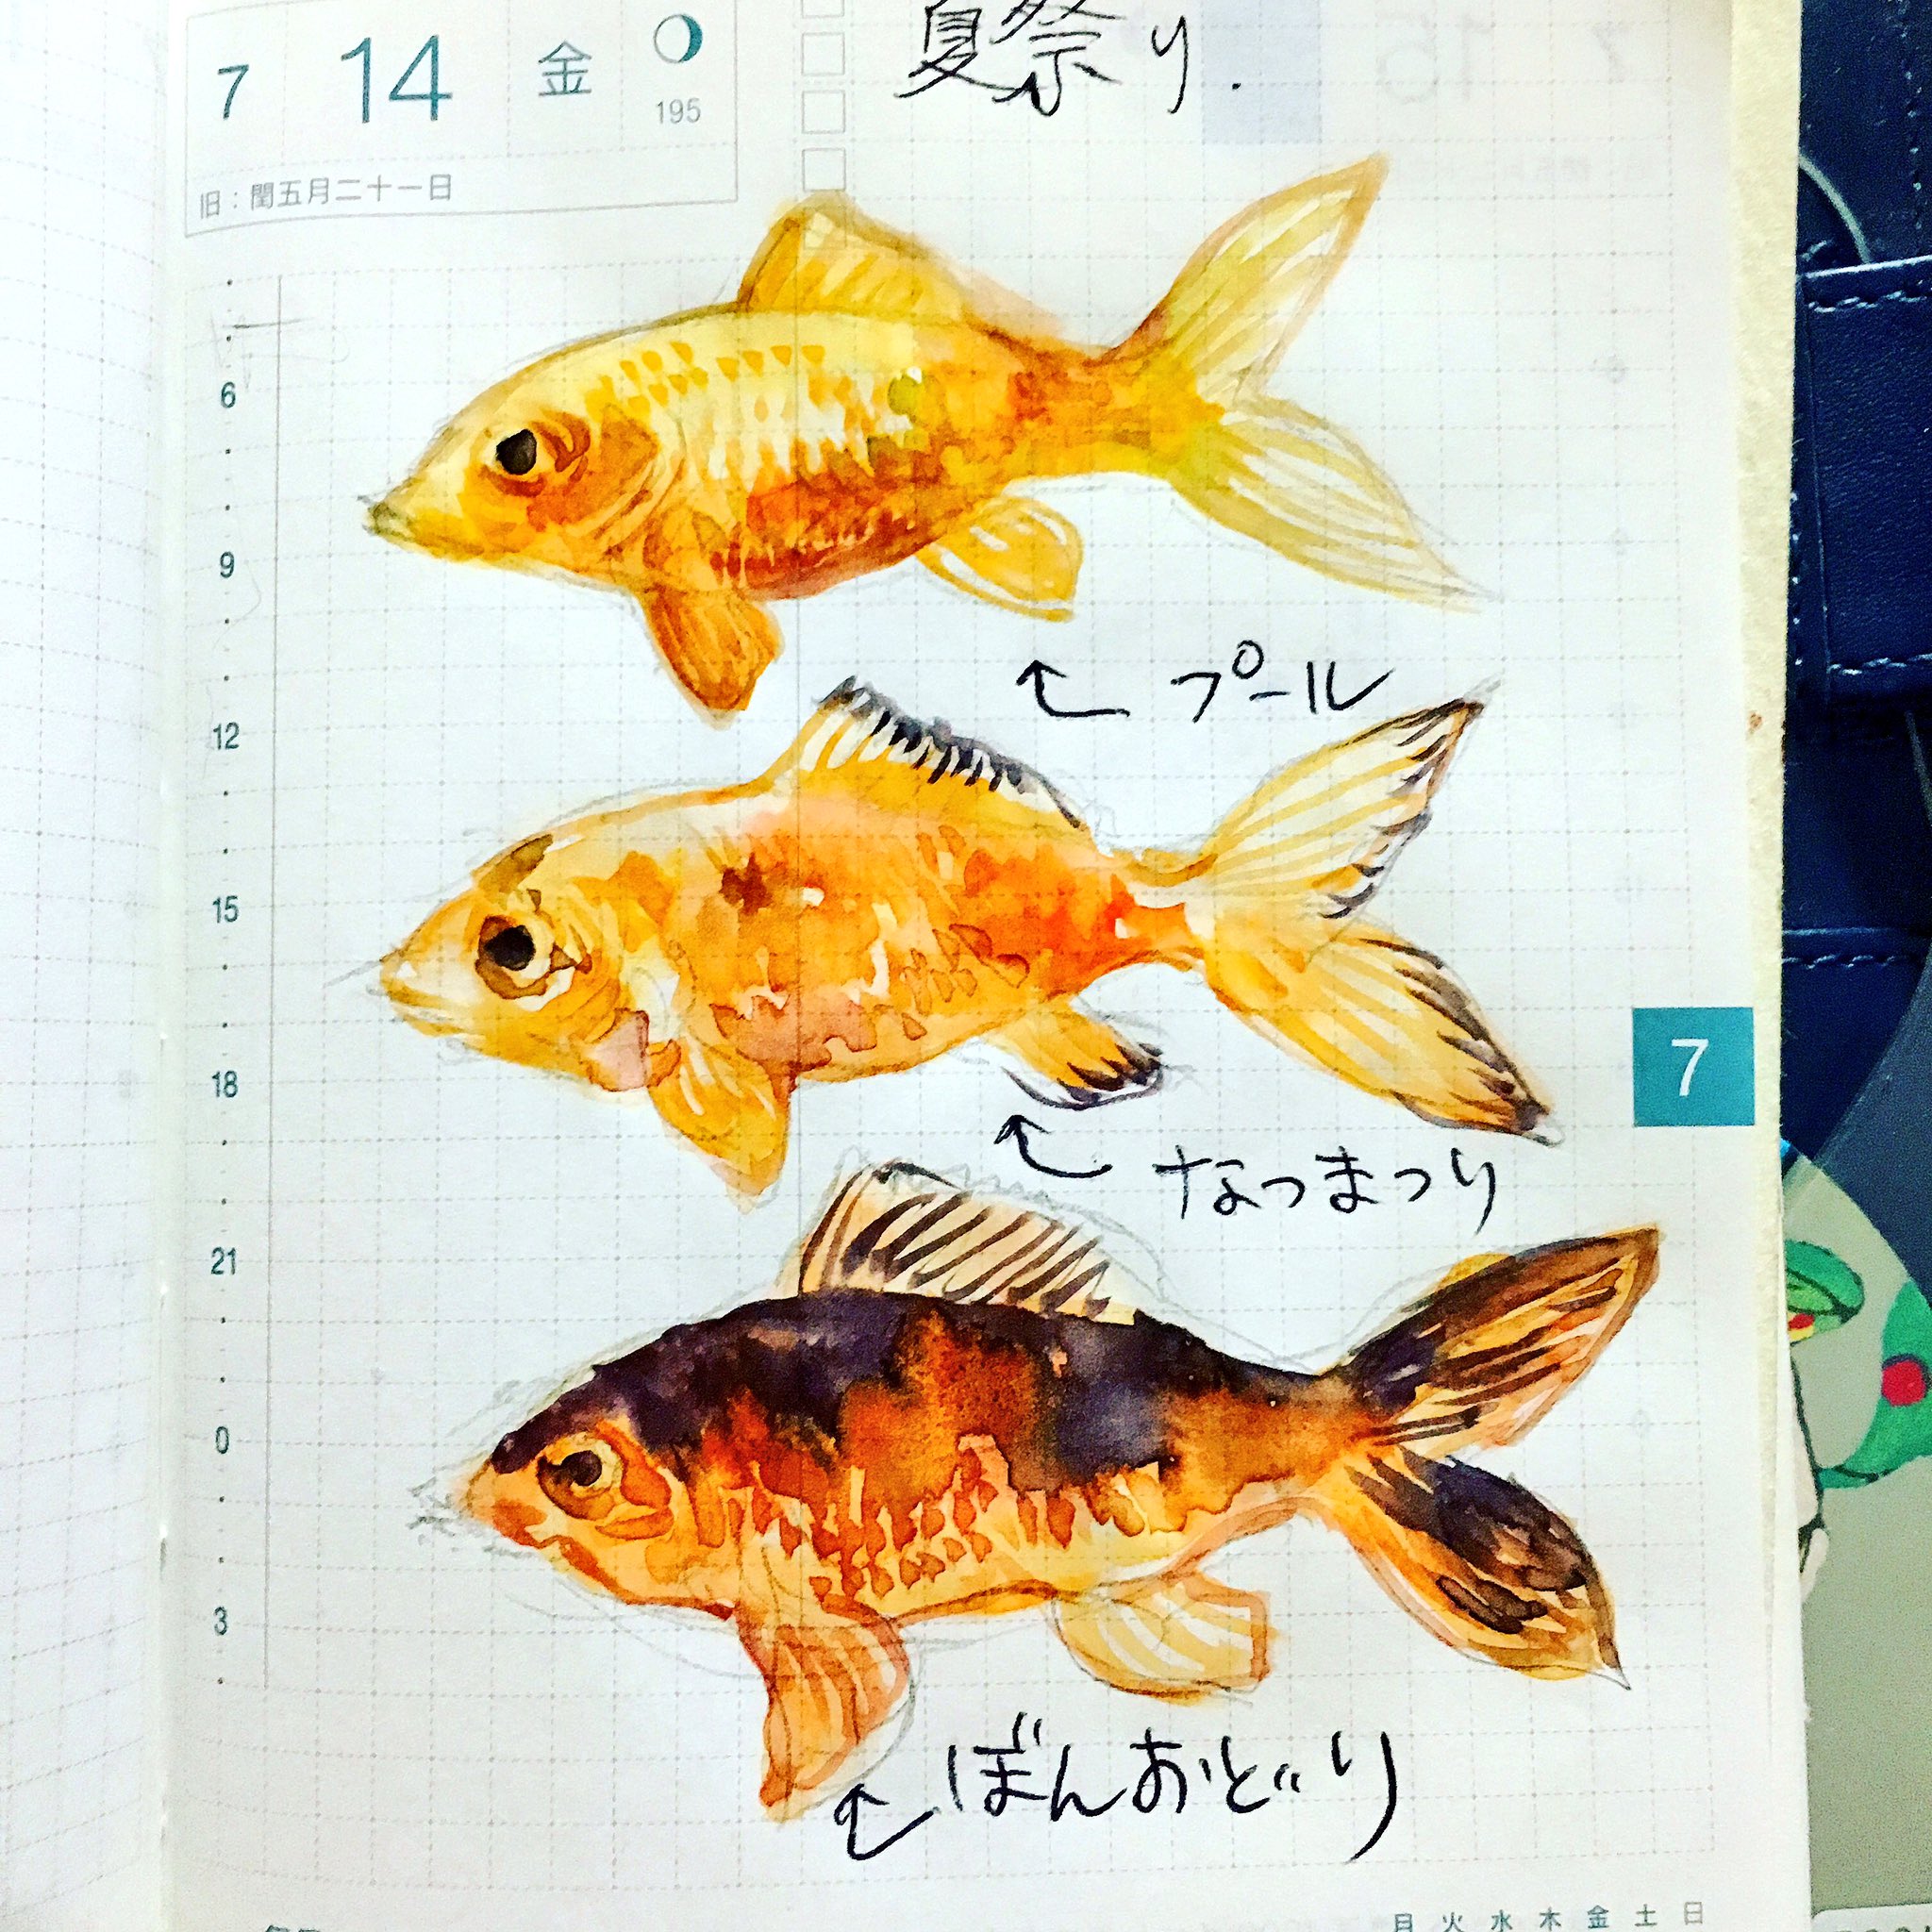 7 14 金
195
旧：閏五月二十一日
夏祭り.
6
9
プール
12
15
18
なつまつり
7
21
0
3
ぼんおどり
月 火 水 木 金 土 日